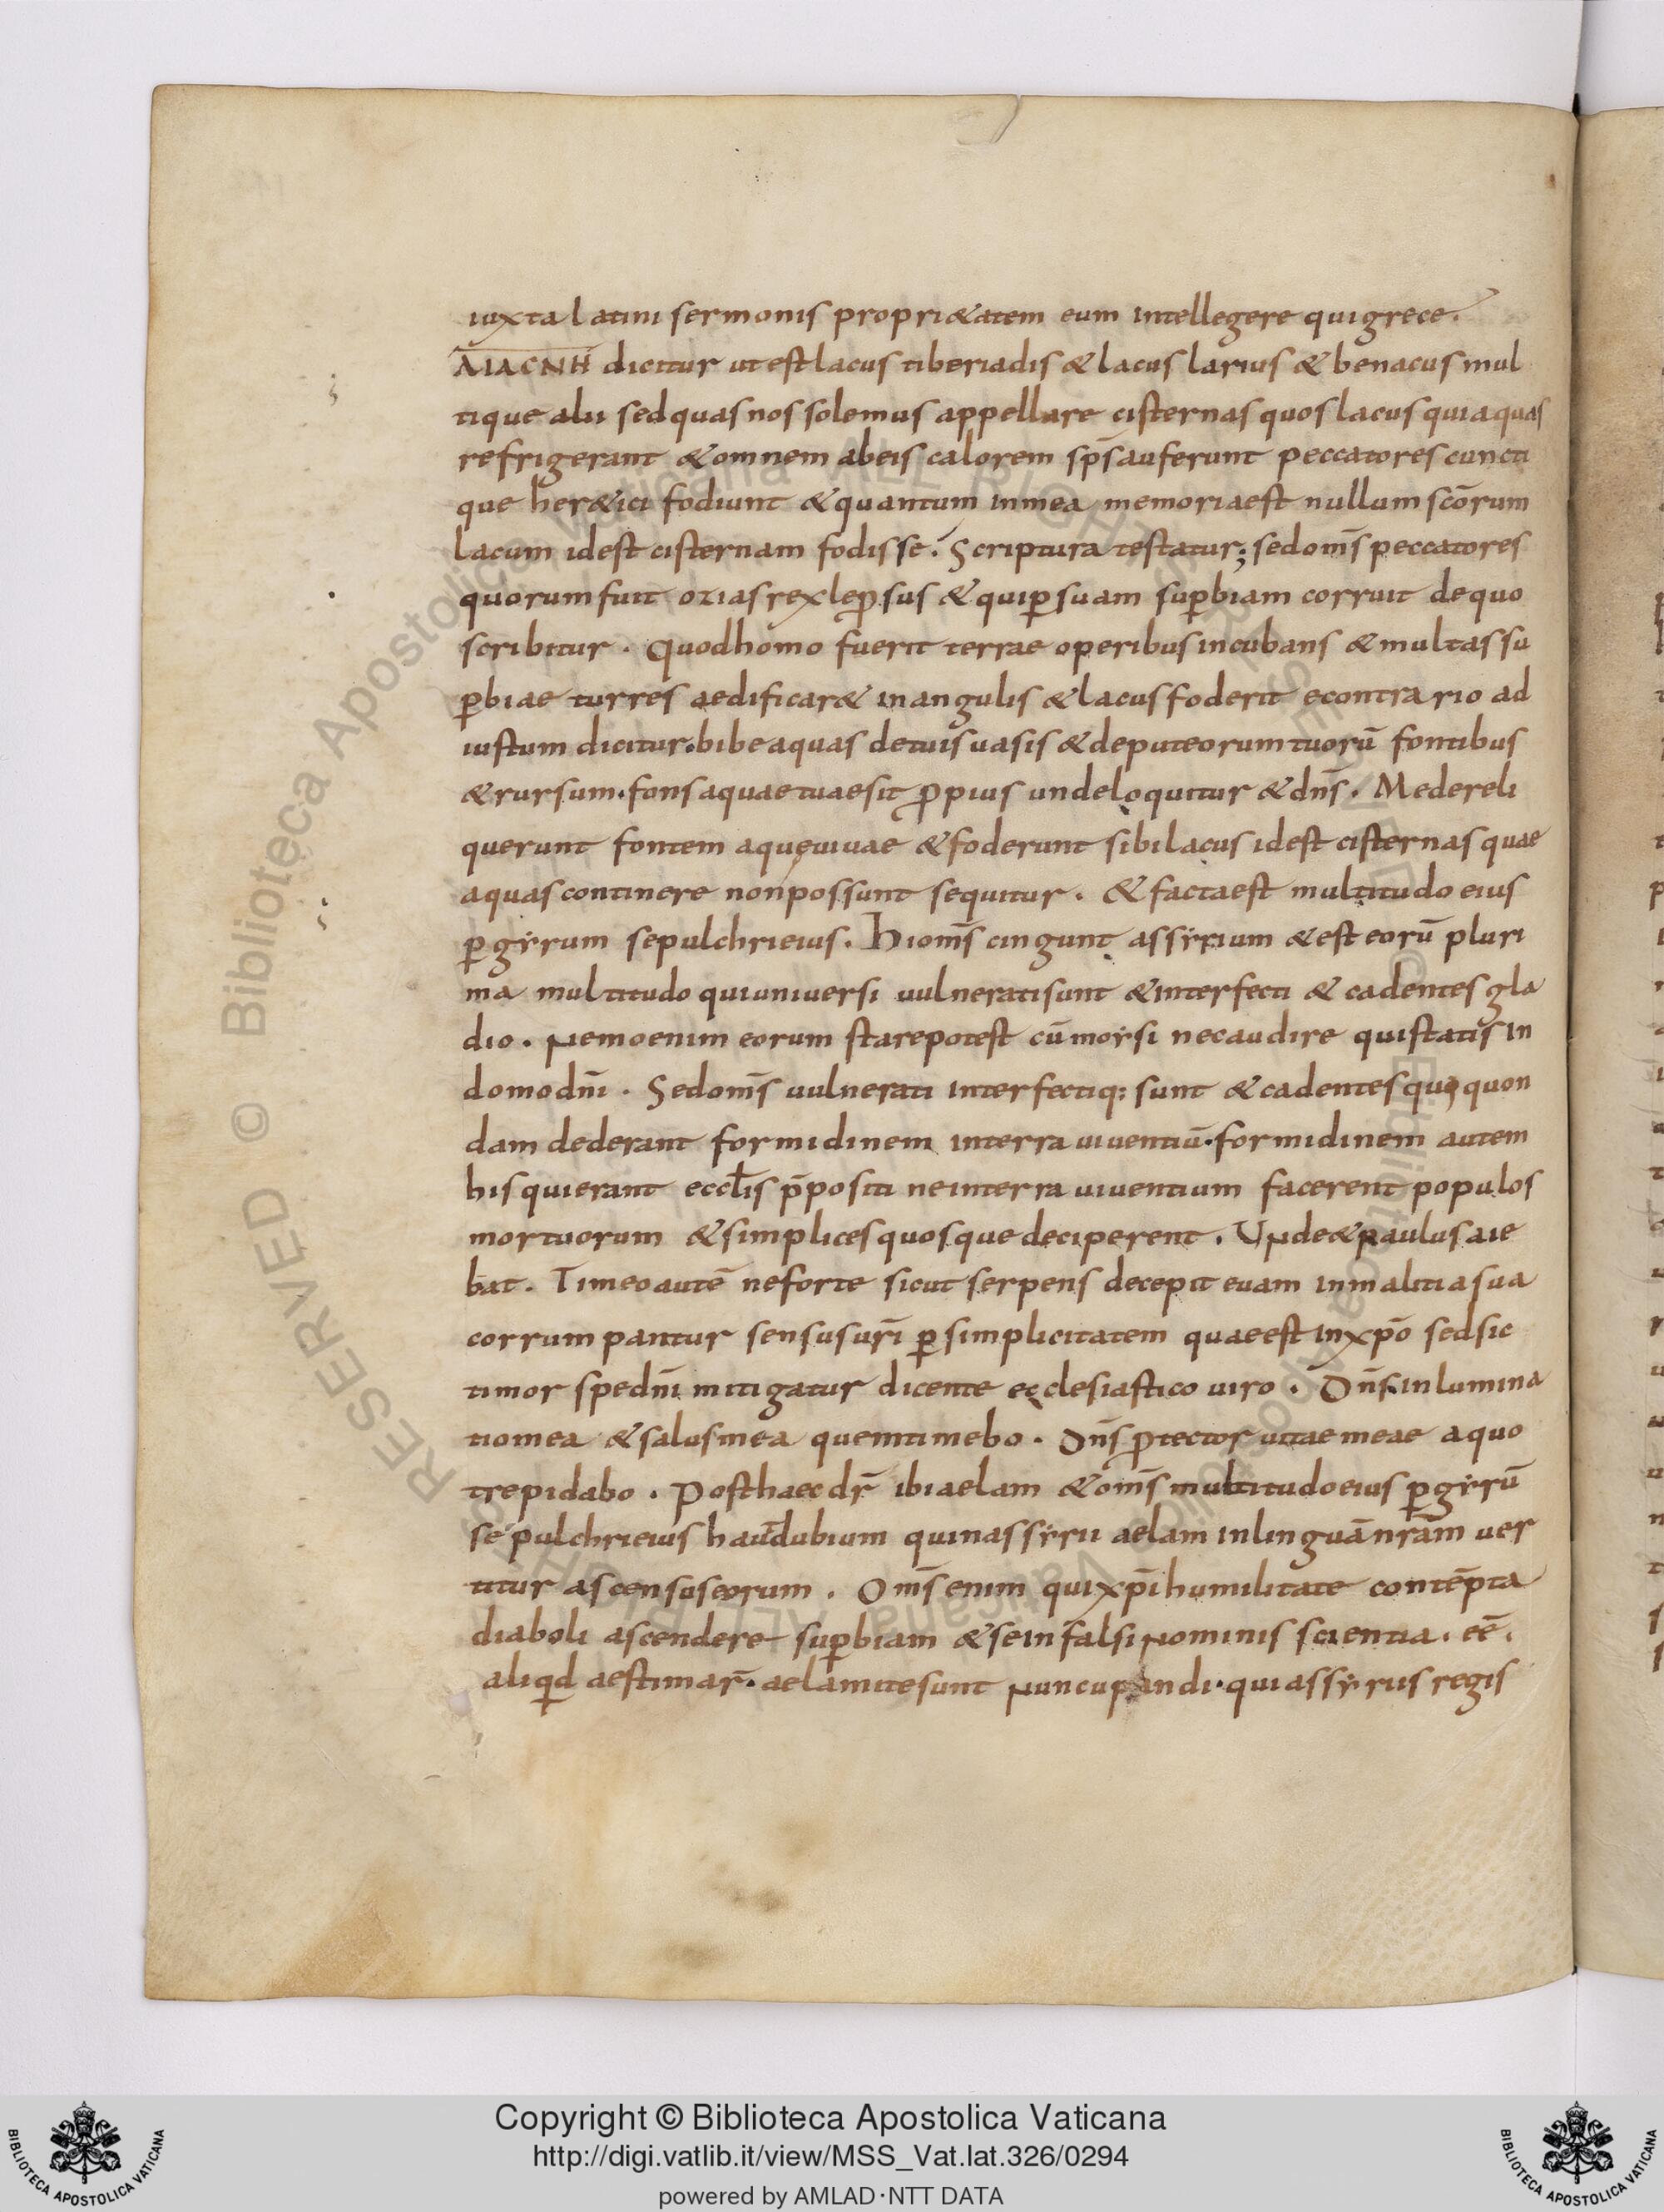 iuxta latini sermonis propri&atem eum intellegere qui grece.
ΛΙΑCΝΗ dicitur ut est lacus tiberiadis & lacus larius & benacus mul
tique alii sed quas nos solemus appellare cisternas quos lacus qui aquas
refrigerant & omnem ab eis calorem sp̄s auferunt peccatores cuncti
que her&ici fodiunt & quantum in mea memoria est nullum scōrum
lacum id est cisternam fodisse. Scriptura testatur; sed om̄s peccatores
quorum fuit ozias rex lep̲sus & qui ꝑ suam suꝑbiam corruit de quo
scribitur. Quod homo fuerit terrae operibus incubans & multas su
ꝑbiae turres aedificar& in angulis & lacus foderit econtrario ad
iustum dicitur. bibe aquas de tuis uasis & de puteorum tuorū fontibus
& rursum. fons aquae tuae sit ꝓpius unde loquitur & dn̄s. Me dereli
querunt fontem aquę uiuae & foderunt sibi lacus id est cisternas quae
aquas continere non possunt sequitur. & facta est multitudo eius
ꝑ gẏrum sepulchri eius. Hi om̄s cingunt assẏrium & est eorū pluri
ma multitudo qui uniuersi uulnerati sunt & interfecti & cadentes gla
dio. Nemo enim eorum stare potest cū moẏsi nec audire qui statis in
domo dn̄i. Sed om̄s uulnerati interfectiq: sunt & cadentes qui quon
dam dederant formidinem in terra uiuentiū. formidinem autem
his qui erant eccl̄is p̄positi ne in terra uiuentium facerent populos
mortuorum & simplices quosque deciperent. Unde & paulus aie
bat. Timeo autē ne forte sicut serpens decepit euam in malitia sua
corrumpantur sensus ur̄i ꝑ simplicitatem quae est in xp̄o sed sic
timor spe dn̄i mitigatur dicente ecclesiastico uiro. Dn̄s inlumina
tio mea & salus mea quem timebo. Dn̄s ꝓtector uitae meae a quo
trepidabo. Post haec dr̄ ibi aelam & om̄s multitudo eius ꝑ gẏrū
sepulchri eius haud dubium quin assẏrii aelam in linguā nrām uer
titur ascensus eorum. Om̄s enim qui xp̄i humilitate contēpta
diaboli ascendere suꝑbiam & se in falsi nominis scientia. eē.
aliqd aestimar̄. aelamite sunt nuncupandi. qui assẏrus regis
Copyright © Biblioteca Apostolica Vaticana
http://digi.vatlib.it/view/MSS_Vat.lat.326/0294
powered by AMLAD·NTT DATA
BIBLIOTECA APOSTOLICA VATICANA
BIBLIOTECA APOSTOLICA VATICANA